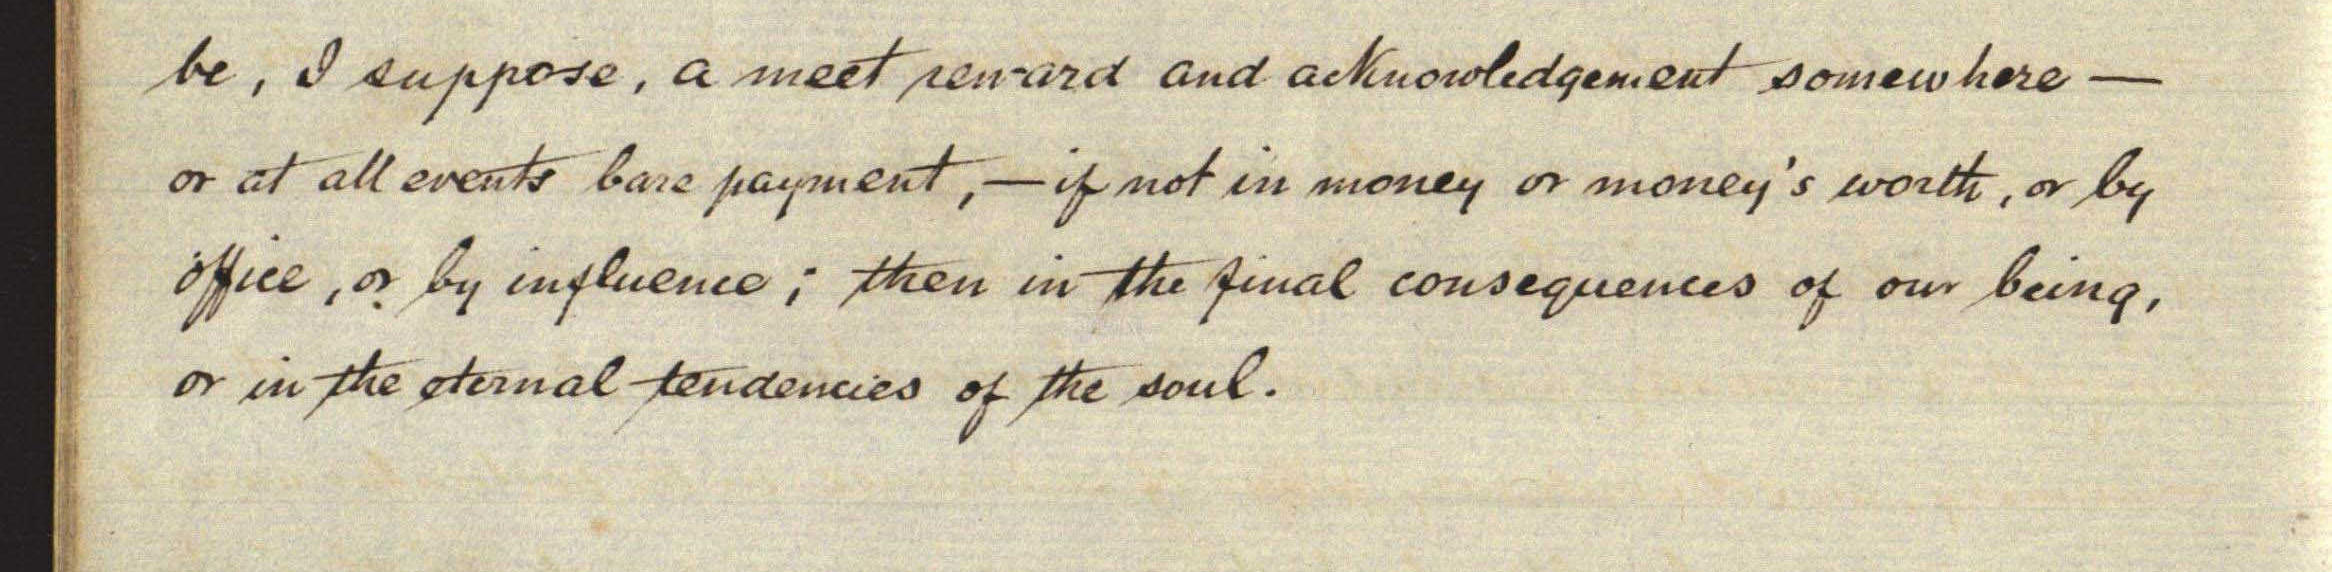 be, I suppose, a meet reward and acknowledgement somewhere —
or at all events bare payment, — if not in money or money's worth, or by
office, or by influence; then in the final consequences of our being,
or in the eternal tendencies of the soul.